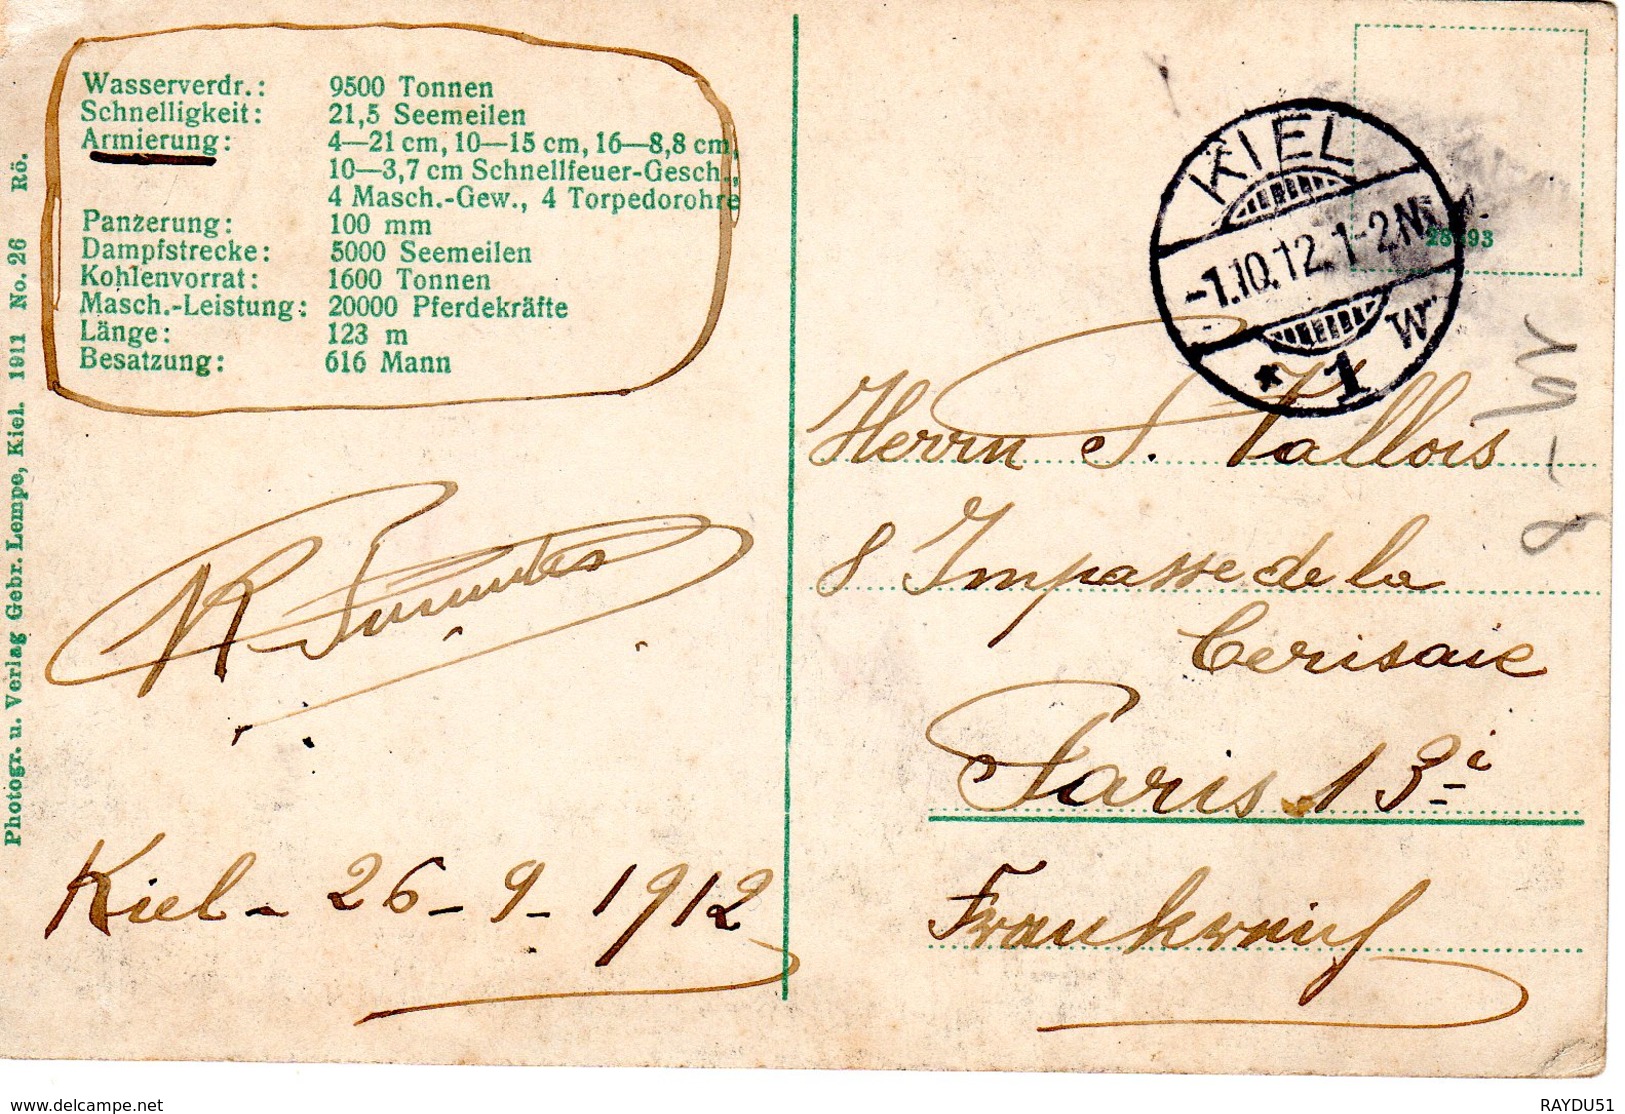 Wasserverdr.: 9500 Tonnen
Schnelligkeit: 21,5 Seemeilen
Armierung: 4—21 cm, 10—15 cm, 16—8,8 cm,
10—3,7 cm Schnellfeuer-Gesch.,
4 Masch.-Gew., 4 Torpedorohre
Panzerung: 100 mm
Dampfstrecke: 5000 Seemeilen
Kohlenvorrat: 1600 Tonnen
Masch.-Leistung: 20000 Pferdekräfte
Länge: 123 m
Besatzung: 616 Mann
Photogr. u. Verlag Gebr. Lempe, Kiel. 1911 No. 26 Rö.
Kiel - 26 - 9 - 1912
KIEL
-1.10.12. 1-2N.
* 1 W
Herrn S. Vallois
8 Impasse de la
Cerisaie
Paris 13i
Frankreich
www.delcampe.net
RAYDU51